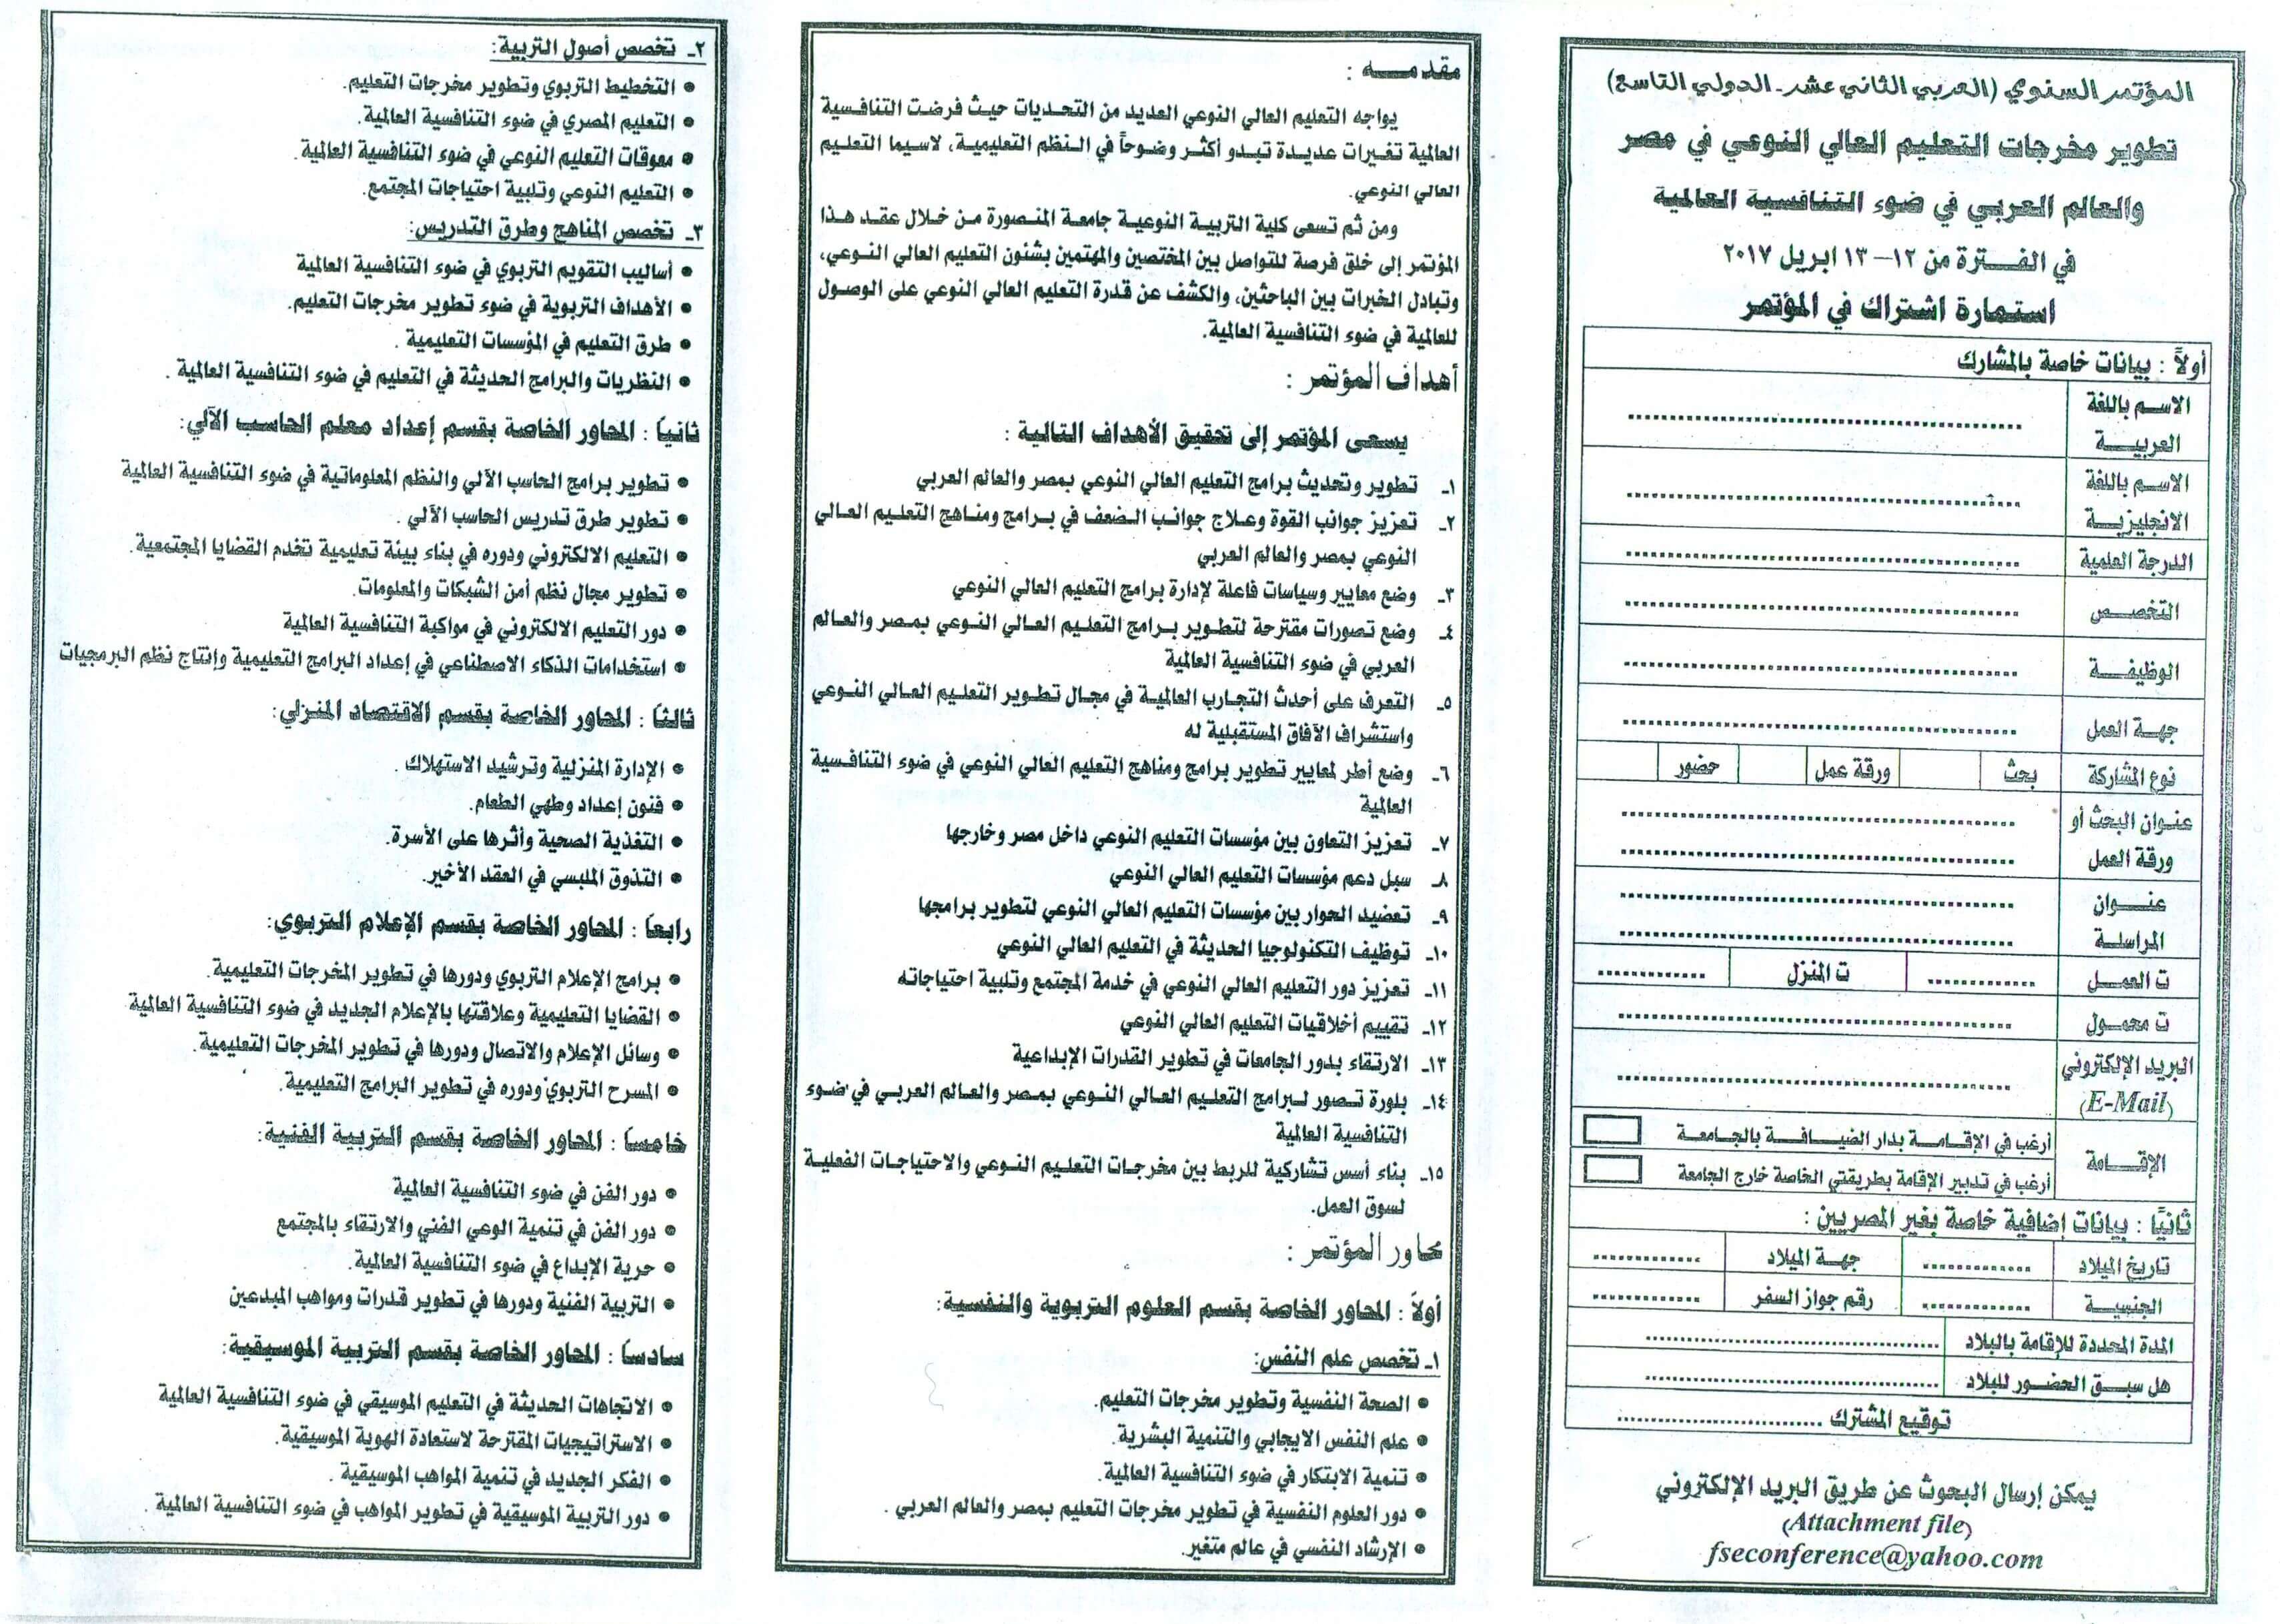 المؤتمر السنوي (العربي الثاني عشر- الدولي التاسع)
تطوير مخرجات التعليم العالي النوعي في مصر
والعالم العربي في ضوء التنافسية العالمية
في الفـــترة من ١٢– ١٣ ابريل ٢٠١٧
استمارة اشتراك في المؤتمر
أولاً : بيانات خاصة بالمشارك
الاسم باللغة
العربيـــة
الاسم باللغة
الانجليزيـــة
الدرجة العلمية
التخصـــص
الوظيفـــة
جهـة العمل
نوع المشاركة بحث ورقة عمل حضور
عنوان البحث أو
ورقة العمل
عنـــوان
المراسلـة
ت العمـــل ت المنزل
ت محمـــول
البريد الإلكتروني
(E-Mail)
الإقـــامة
أرغب في الإقـامــة بدار الضيــافــة بالجـامعـة
أرغب في تدبير الإقامة بطريقتي الخاصة خارج الجامعة
ثانيًا : بيانات إضافية خاصة بغير المصريين :
تاريخ الميلاد جهـة الميلاد
الجنسيـــة رقم جواز السفر
المدة المحددة للإقامة بالبلاد
هل سبـق الحضـور للبلاد
توقيع المشترك ..........................
يمكن إرسال البحوث عن طريق البريد الإلكتروني
(Attachment file)
fseconference@yahoo.com
مقدمـــه :
يواجه التعليم العالي النوعي العديد من التحديات حيث فرضت التنافسية
العالمية تغيرات عديدة تبدو أكثر وضوحاً في النظم التعليمية، لاسيما التعليم
العالي النوعي.
ومن ثم تسعى كلية التربية النوعية جامعة المنصورة من خلال عقد هذا
المؤتمر إلى خلق فرصة للتواصل بين المختصين والمهتمين بشئون التعليم العالي النوعي،
وتبادل الخبرات بين الباحثين، والكشف عن قدرة التعليم العالي النوعي على الوصول
للعالمية في ضوء التنافسية العالمية.
أهداف المؤتمر :
يسعى المؤتمر إلى تحقيق الأهداف التالية :
١ـ تطوير وتحديث برامج التعليم العالي النوعي بمصر والعالم العربي
٢ـ تعزيز جوانب القوة وعلاج جوانب الضعف في برامج ومناهج التعليم العالي
النوعي بمصر والعالم العربي
٣ـ وضع معايير وسياسات فاعلة لإدارة برامج التعليم العالي النوعي
٤ـ وضع تصورات مقترحة لتطوير برامج التعليم العالي النوعي بمصر والعالم
العربي في ضوء التنافسية العالمية
٥ـ التعرف على أحدث التجارب العالمية في مجال تطوير التعليم العالي النوعي
واستشراف الآفاق المستقبلية له
٦ـ وضع أطر لمعايير تطوير برامج ومناهج التعليم العالي النوعي في ضوء التنافسية
العالمية
٧ـ تعزيز التعاون بين مؤسسات التعليم النوعي داخل مصر وخارجها
٨ـ سبل دعم مؤسسات التعليم العالي النوعي
٩ـ تعضيد الحوار بين مؤسسات التعليم العالي النوعي لتطوير برامجها
١٠ـ توظيف التكنولوجيا الحديثة في التعليم العالي النوعي
١١ـ تعزيز دور التعليم العالي النوعي في خدمة المجتمع وتلبية احتياجاته
١٢ـ تقييم أخلاقيات التعليم العالي النوعي
١٣ـ الارتقاء بدور الجامعات في تطوير القدرات الإبداعية
١٤ـ بلورة تصور لبرامج التعليم العالي النوعي بمصر والعالم العربي في ضوء
التنافسية العالمية
١٥ـ بناء أسس تشاركية للربط بين مخرجات التعليم النوعي والاحتياجات الفعلية
لسوق العمل.
محاور المؤتمر :
أولاً : المحاور الخاصة بقسم العلوم التربوية والنفسية:
١ـ تخصص علم النفس:
• الصحة النفسية وتطوير مخرجات التعليم.
• علم النفس الايجابي والتنمية البشرية.
• تنمية الابتكار في ضوء التنافسية العالمية.
• دور العلوم النفسية في تطوير مخرجات التعليم بمصر والعالم العربي .
• الإرشاد النفسي في عالم متغير.
٢ـ تخصص أصول التربية:
• التخطيط التربوي وتطوير مخرجات التعليم.
• التعليم المصري في ضوء التنافسية العالمية.
• معوقات التعليم النوعي في ضوء التنافسية العالمية.
• التعليم النوعي وتلبية احتياجات المجتمع.
٣ـ تخصص المناهج وطرق التدريس:
• أساليب التقويم التربوي في ضوء التنافسية العالمية
• الأهداف التربوية في ضوء تطوير مخرجات التعليم.
• طرق التعليم في المؤسسات التعليمية .
• النظريات والبرامج الحديثة في التعليم في ضوء التنافسية العالمية .
ثانياً : المحاور الخاصة بقسم إعداد معلم الحاسب الآلي:
• تطوير برامج الحاسب الآلي والنظم المعلوماتية في ضوء التنافسية العالمية
• تطوير طرق تدريس الحاسب الآلي .
• التعليم الالكتروني ودوره في بناء بيئة تعليمية تخدم القضايا المجتمعية.
• تطوير مجال نظم أمن الشبكات والمعلومات.
• دور التعليم الالكتروني في مواكبة التنافسية العالمية
• استخدامات الذكاء الاصطناعي في إعداد البرامج التعليمية وإنتاج نظم البرمجيات
ثالثاً : المحاور الخاصة بقسم الاقتصاد المنزلي:
• الإدارة المنزلية وترشيد الاستهلاك.
• فنون إعداد وطهي الطعام.
• التغذية الصحية وأثرها على الأسرة.
• التذوق الملبسي في العقد الأخير.
رابعاً : المحاور الخاصة بقسم الإعلام التربوي:
• برامج الإعلام التربوي ودورها في تطوير المخرجات التعليمية.
• القضايا التعليمية وعلاقتها بالإعلام الجديد في ضوء التنافسية العالمية.
• وسائل الإعلام والاتصال ودورها في تطوير المخرجات التعليمية.
• المسرح التربوي ودوره في تطوير البرامج التعليمية.
خامساً : المحاور الخاصة بقسم التربية الفنية:
• دور الفن في ضوء التنافسية العالمية
• دور الفن في تنمية الوعي الفني والارتقاء بالمجتمع
• حرية الإبداع في ضوء التنافسية العالمية.
• التربية الفنية ودورها في تطوير قدرات ومواهب المبدعين
سادساً : المحاور الخاصة بقسم التربية الموسيقية:
• الاتجاهات الحديثة في التعليم الموسيقي في ضوء التنافسية العالمية
• الاستراتيجيات المقترحة لاستعادة الهوية الموسيقية.
• الفكر الجديد في تنمية المواهب الموسيقية .
• دور التربية الموسيقية في تطوير المواهب في ضوء التنافسية العالمية .